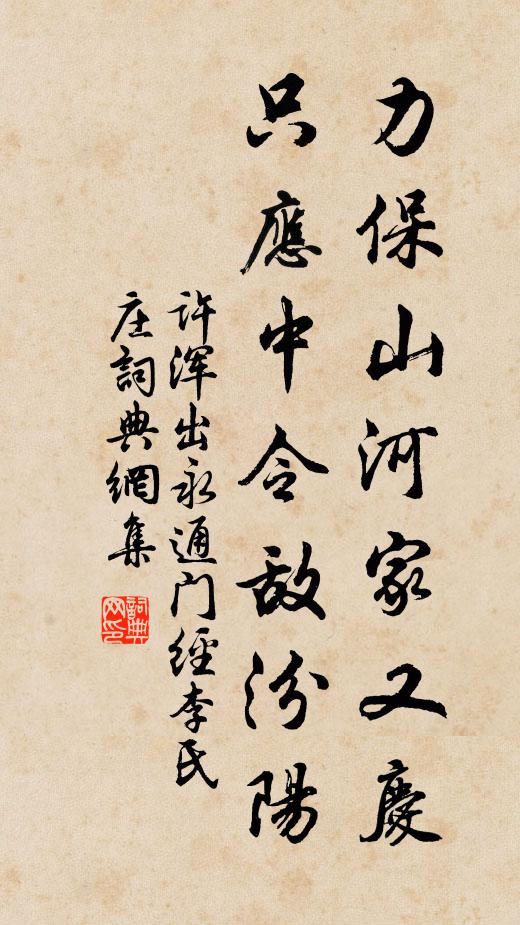 力保山河家又慶
只應中令敌汾陽
许浑出永通门經李氏
庄詞典網集
詞典网印